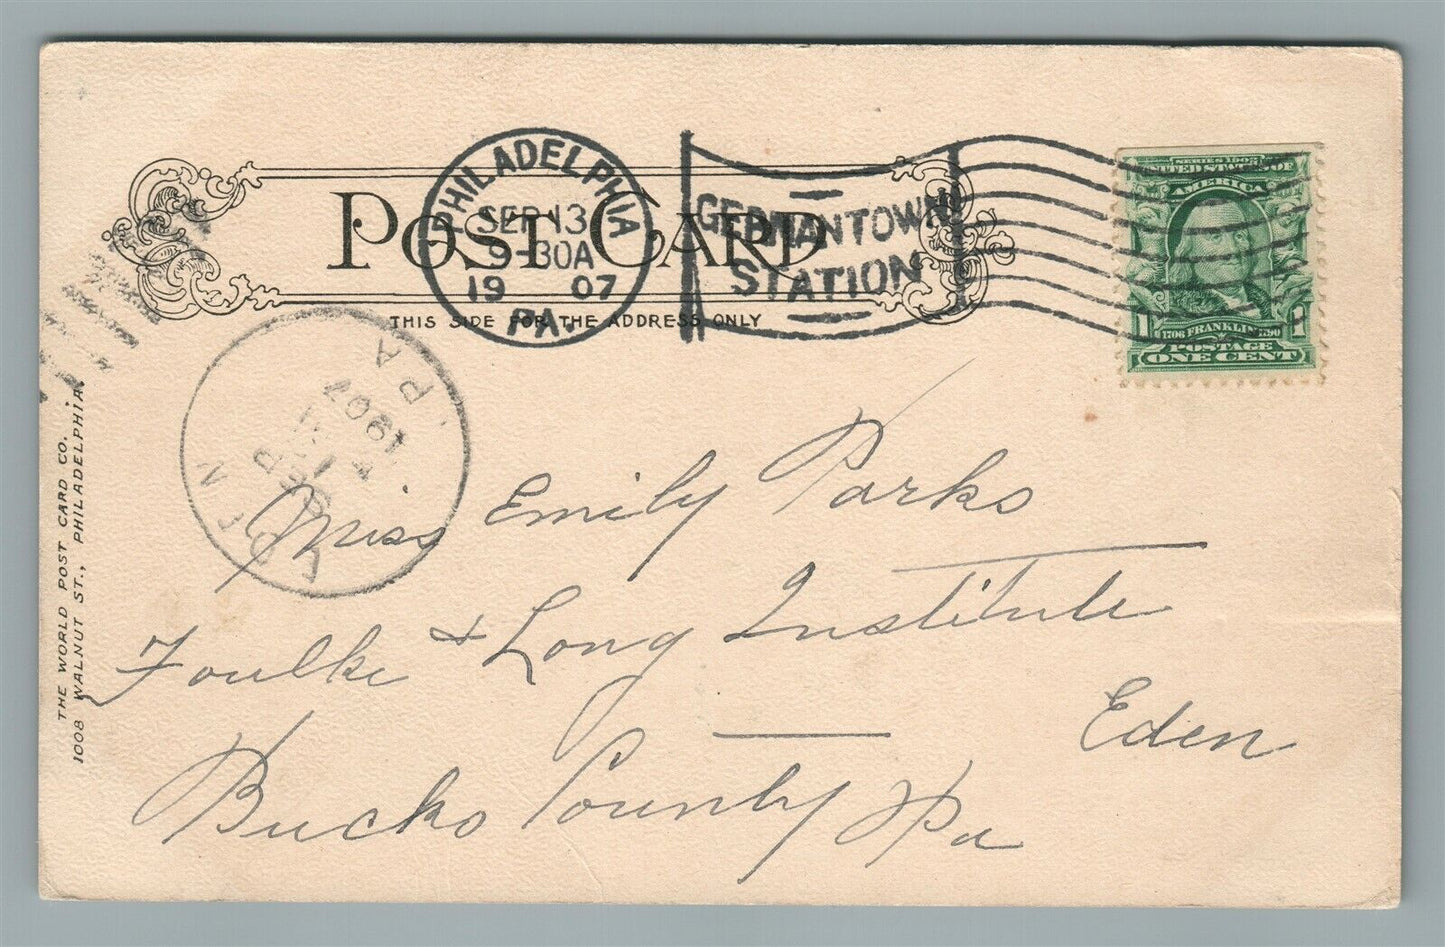 POST CARD
THIS SIDE FOR THE ADDRESS ONLY
PHILADELPHIA
SEP 13
9-30A
19 07
PA.
GERMANTOWN
STATION
SERIES 1902
UNITED STATES OF
AMERICA
1 1706 FRANKLIN 1790 1
POSTAGE
ONE CENT
PA
1907
SEP
Miss Emily Parks
Foulke & Long Institute
Eden
Bucks County Pa
THE WORLD POST CARD CO.
1008 WALNUT ST., PHILADELPHIA.